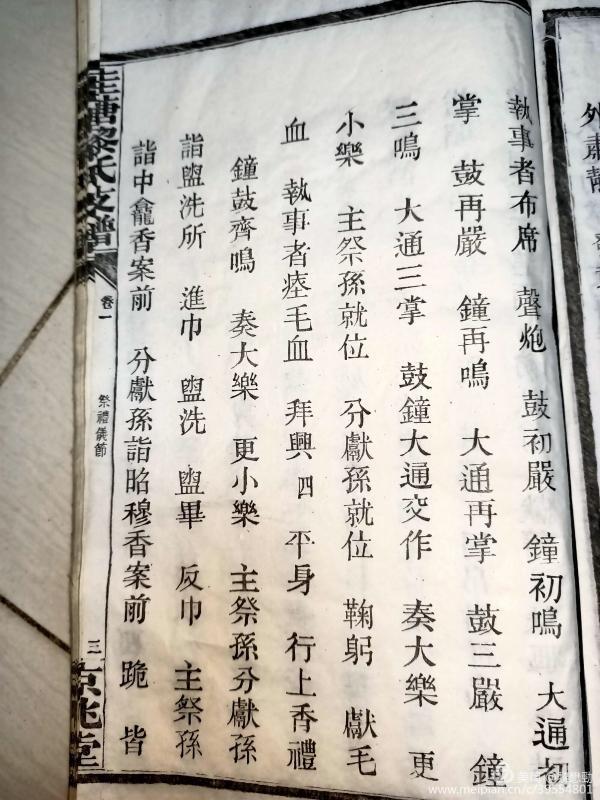 外肅靜
執事者布席 聲炮 鼓初嚴 鐘初鳴 大通初
掌 鼓再嚴 鐘再鳴 大通再掌 鼓三嚴 鐘
三鳴 大通三掌 鼓鐘大通交作 奏大樂 更
小樂 主祭孫就位 分獻孫就位 鞠躬 獻毛
血 執事者瘞毛血 拜興四 平身 行上香禮
鐘鼓齊鳴 奏大樂 更小樂 主祭孫分獻孫
詣盥洗所 進巾 盥洗 盥畢 反巾 主祭孫
詣中龕香案前 分獻孫詣昭穆香案前 跪 皆
塘黎氏支譜
卷一
祭禮儀節
三
京兆堂
www.meipian.cn/c/39554801